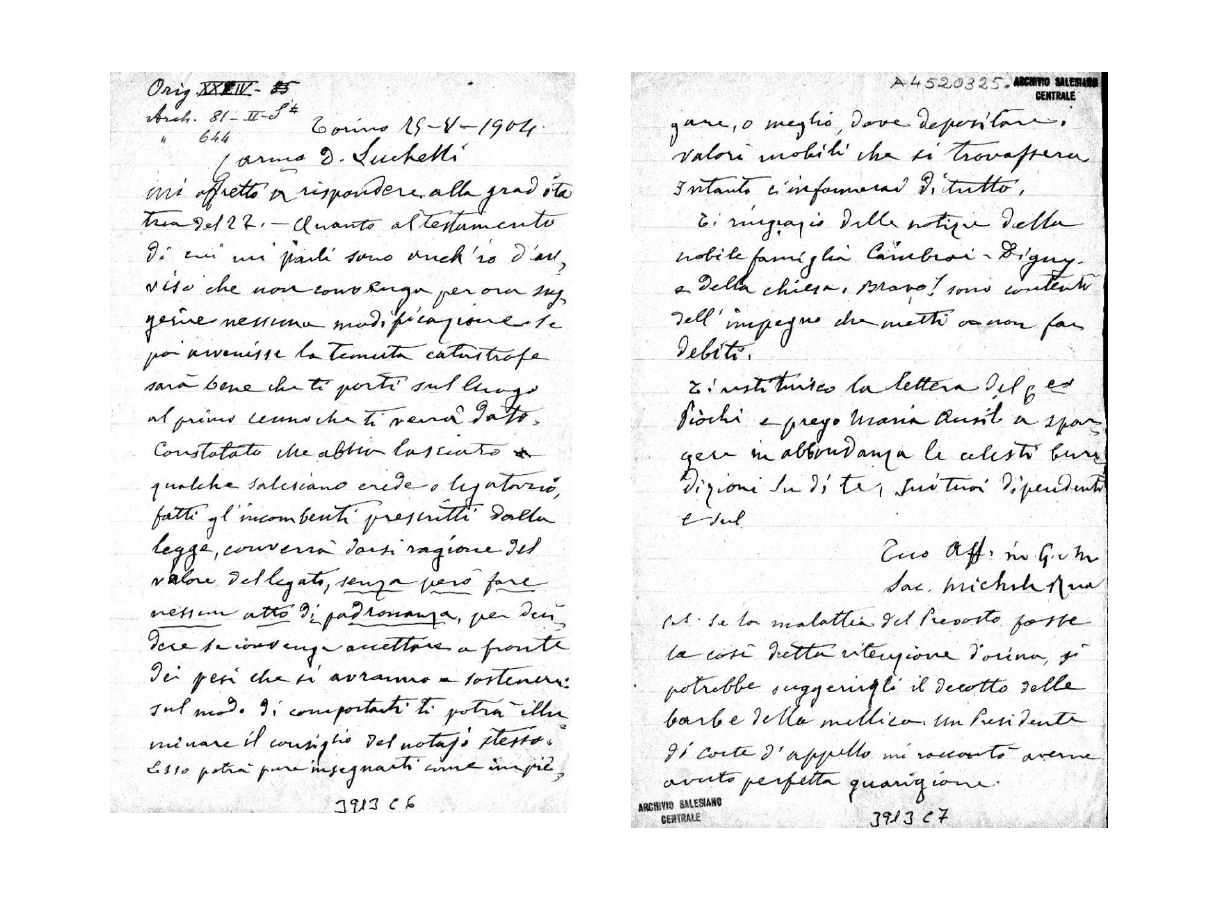 Orig. XXXIV - 85
Arch. 81-II-S^ta
" 644
Torino 29-V-1904.
Carmo D. Luchelli
mi affretto a rispondere alla gradita
tua del 27. — Quanto al testamento
di cui mi parli sono anch'io d'av,
viso che non convenga per ora sug,
gerire nessuna modificazione. Se
poi avvenisse la temuta catastrofe
sarà bene che ti porti sul luogo
al primo cenno che ti verrà dato.
Constatato che abbia lasciato
qualche salesiano erede o legatario,
fatti gl'incombenti prescritti dalla
legge, converrà darsi ragione del
valore del legato, senza però fare
nessun atto di padronanza, per deci,
dere se convenga accettare a fronte
dei pesi che si avranno a sostenere:
sul modo di comportarti ti potrà illu
minare il consiglio del notajo stesso.
Esso potrà pure insegnarti come impie,
3913 C6
A4520325. ARCHIVIO SALESIANO
CENTRALE
gare, o meglio, dove depositare i
valori mobili che si trovassero
Intanto c'informerai di tutto.
Ti ringrazio delle notizie della
nobile famiglia Cambrai-Digny.
e della chiesa. Bravo! sono contento
dell'impegno che metti a non far
debiti.
Ti restituisco la lettera del
Piochi e prego Maria Ausil. a spar,
gere in abbondanza le celesti bene
dizioni su di te, sui tuoi dipendenti
e sul
Tuo Aff. in G. e M
Sac. Michele Rua
P.S. Se la malattia del Prevosto fosse
la così detta ritenzione d'orina, si
potrebbe suggerirgli il decotto delle
barbe della mellica. Un Presidente
di corte d'appello mi raccontò averne
avuto perfetta guarigione.
ARCHIVIO SALESIANO
CENTRALE
3913 C7